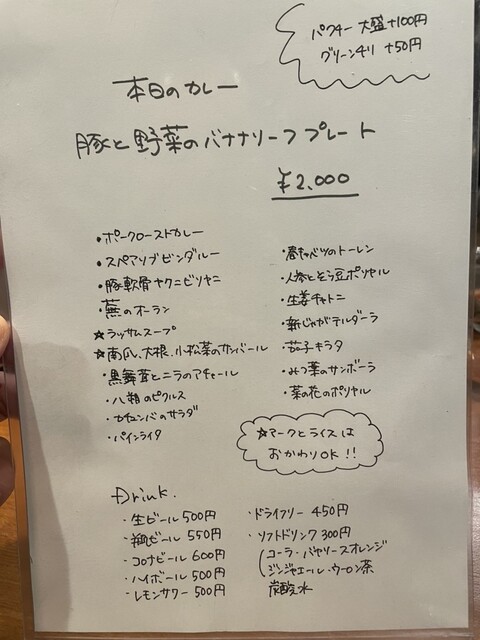 パクチー 大盛 +100円
グリーンチリ +50円
本日のカレー
豚と野菜のバナナリーフプレート
¥2,000
・ポークローストカレー
・スペアリブビンダルー
・豚軟骨ヤクニビリヤニ
・蕪のオーラン
☆ラッサムスープ
☆南瓜、大根、小松菜のサンバール
・黒舞茸とニラのアチャール
・八朔のピクルス
・カチュンバのサラダ
・パインライタ
・春キャベツのトーレン
・人参とそら豆ポリヤル
・生姜チャトニ
・新じゃがテルダーラ
・茄子キラタ
・みつ葉のサンボーラ
・菜の花のポリヤル
☆マークとライスは
おかわりOK!!
Drink.
・生ビール 500円
・瓶ビール 550円
・コロナビール 600円
・ハイボール 500円
・レモンサワー 500円
・ドライフリー 450円
・ソフトドリンク 300円
(コーラ・バヤリースオレンジ
ジンジャエール・ウーロン茶
炭酸水